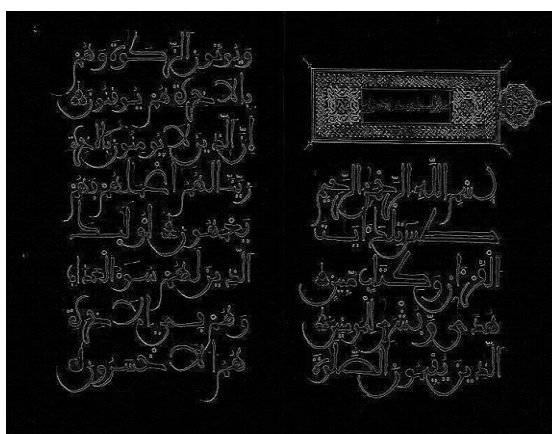 بسم الله الرحمن الرحيم
طس تلك ءايت
القرءان وكتاب مبين
هدى وبشرى للمومنين
الذين يقيمون الصلوة
ويوتون الزكوة وهم
بالاخرة هم يوقنون
إن الذين لا يومنون بالاخرة
زينا لهم أعملهم فهم
يعمهون أولئك
الذين لهم سوء العذاب
وهم في الاخرة
هم الاخسرون